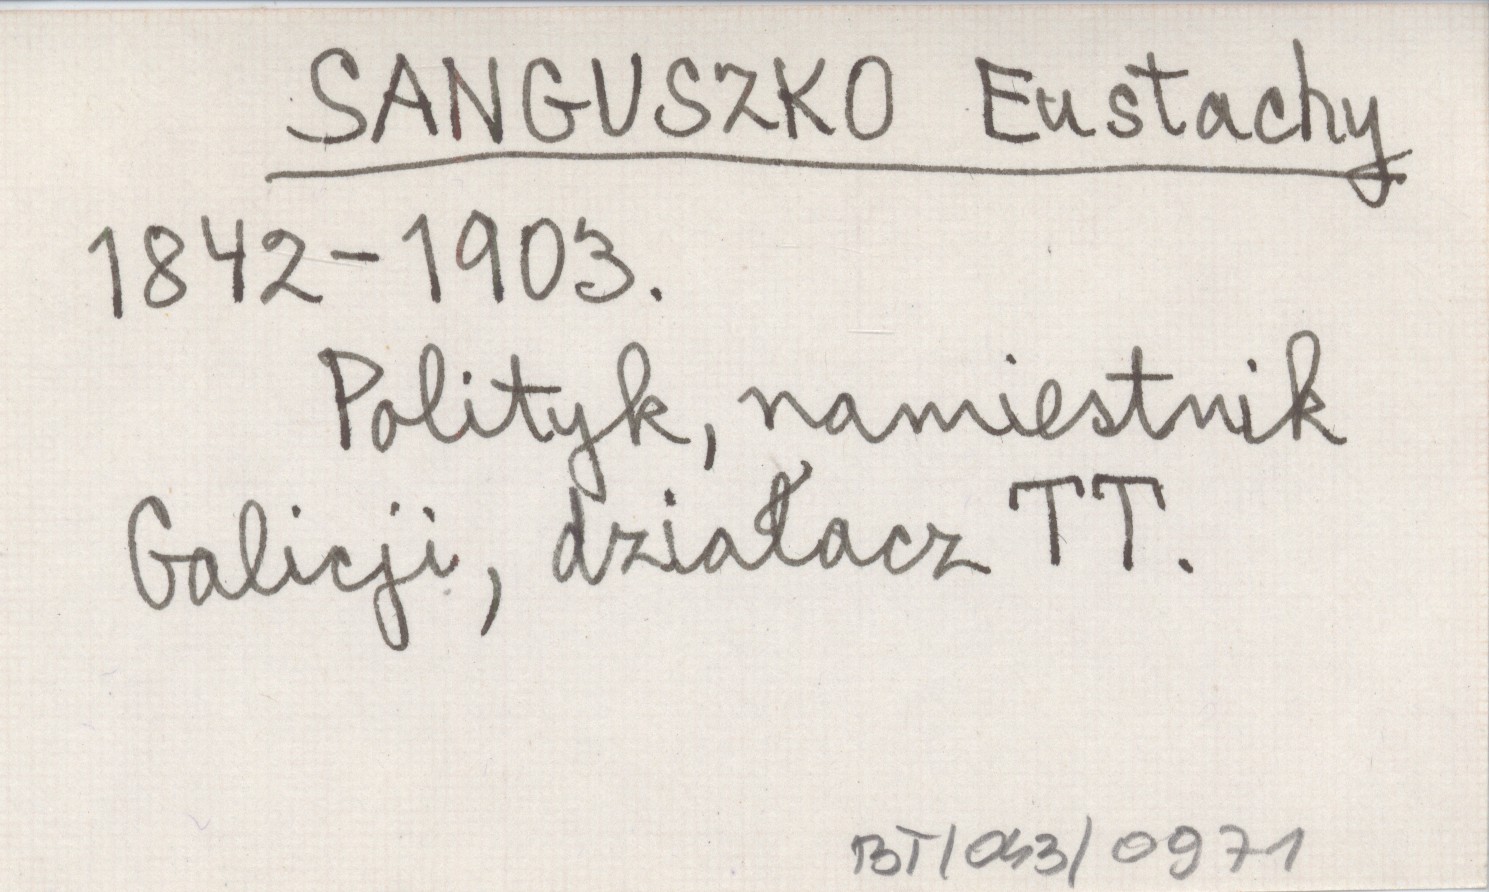 SANGUSZKO Eustachy
1842-1903.
Polityk, namiestnik
Galicji, działacz TT.
BT/043/0971